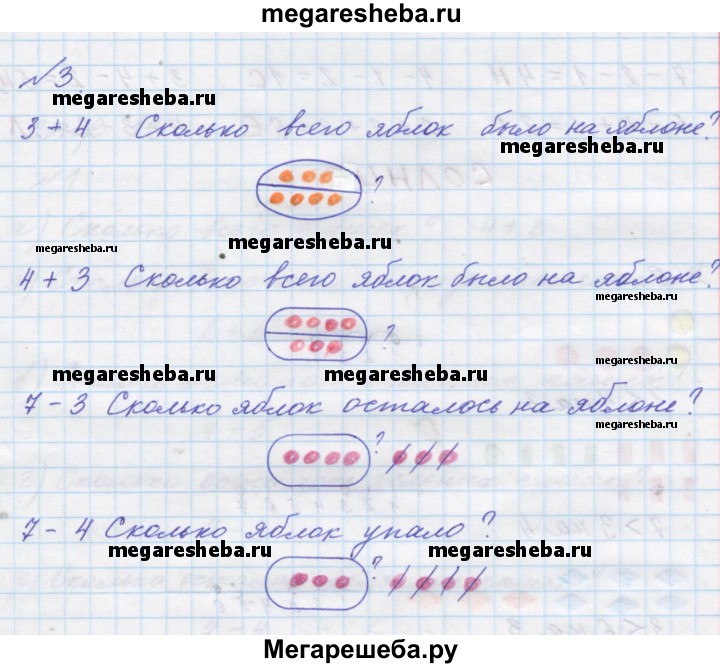 megaresheba.ru
№3
megaresheba.ru
3 + 4 Сколько всего яблок было на яблоне?
megaresheba.ru
?
megaresheba.ru
megaresheba.ru
4 + 3 Сколько всего яблок было на яблоне?
megaresheba.ru
?
megaresheba.ru
megaresheba.ru
megaresheba.ru
7 - 3 Сколько яблок осталось на яблоне?
megaresheba.ru
?
7 - 4 Сколько яблок упало?
megaresheba.ru
megaresheba.ru
?
Мегарешеба.ру